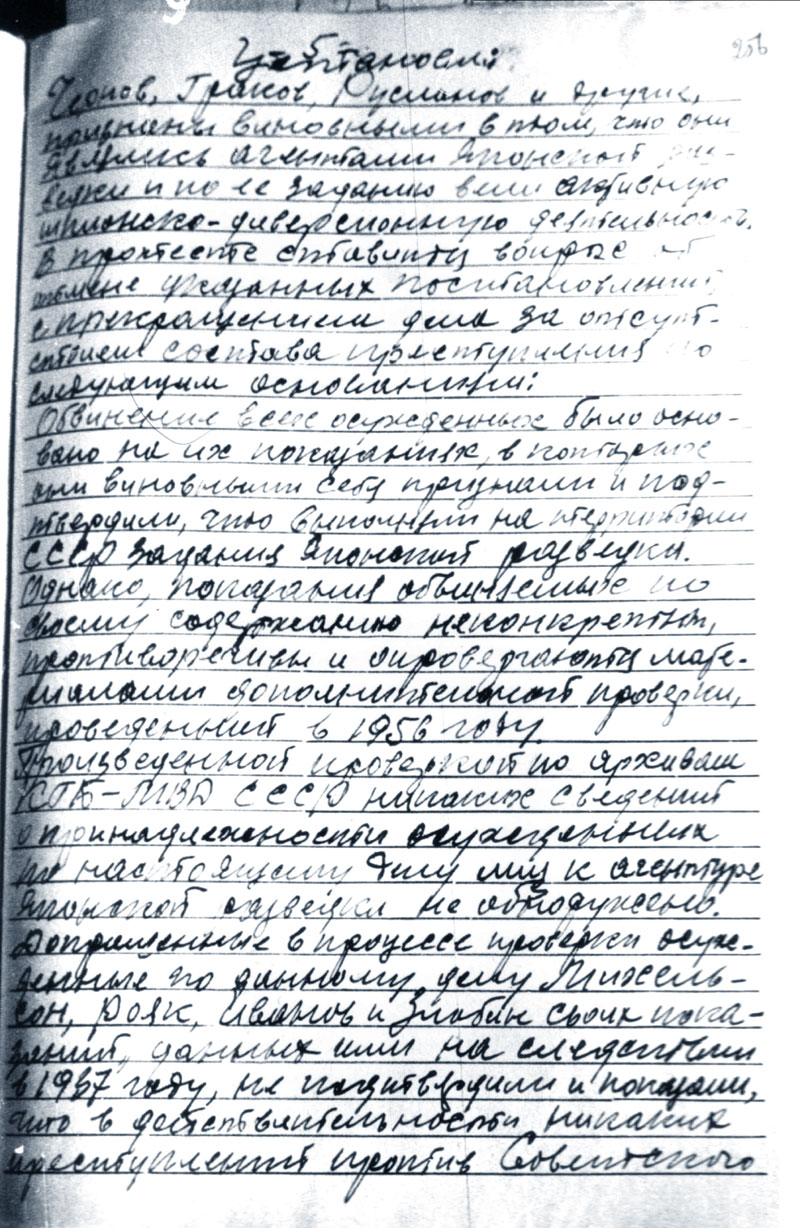 256
Установил:
Чеонов, Граков, Русланов и другие,
признаны виновными в том, что они
являлись агентами Японской раз-
ведки и по ее заданию вели активную
шпионско-диверсионную деятельность.
В протесте ставится вопрос об
отмене указанных постановлений
с прекращением дела за отсут-
ствием состава преступления по
следующим основаниям:
Обвинение всех осужденных было осно-
вано на их показаниях, в которых
они виновными себя признали и под-
твердили, что выполняли на территории
СССР задания Японской разведки.
Однако, показания обвиняемых по
своему содержанию неконкретны,
противоречивы и опровергаются мате-
риалами дополнительной проверки,
проведенной в 1956 году.
Произведенной проверкой по архивам
КГБ-МВД СССР никаких сведений
о принадлежности осужденных
по настоящему делу лиц к агентуре
Японской разведки не обнаружено.
Допрошенные в процессе проверки осуж-
денные по данному делу Михель-
сон, Рояк, Иванов и Злобин своих пока-
заний, данных ими на следствии
в 1937 году, не подтвердили и показали,
что в действительности никаких
преступлений против Советского